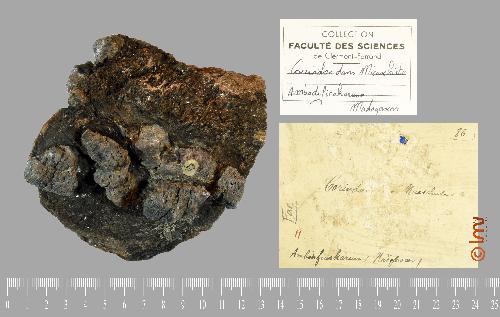 COLLECTION
FACULTÉ DES SCIENCES
de Clermont-Ferrand
Corindon dans Micaschiste
Madagascar
86
Corindon Micaschiste
Fac
H
© lmv
0 1 2 3 4 5 6 7 8 9 10 11 12 13 14 15 16 17 18 19 20 21 22 23 24 25